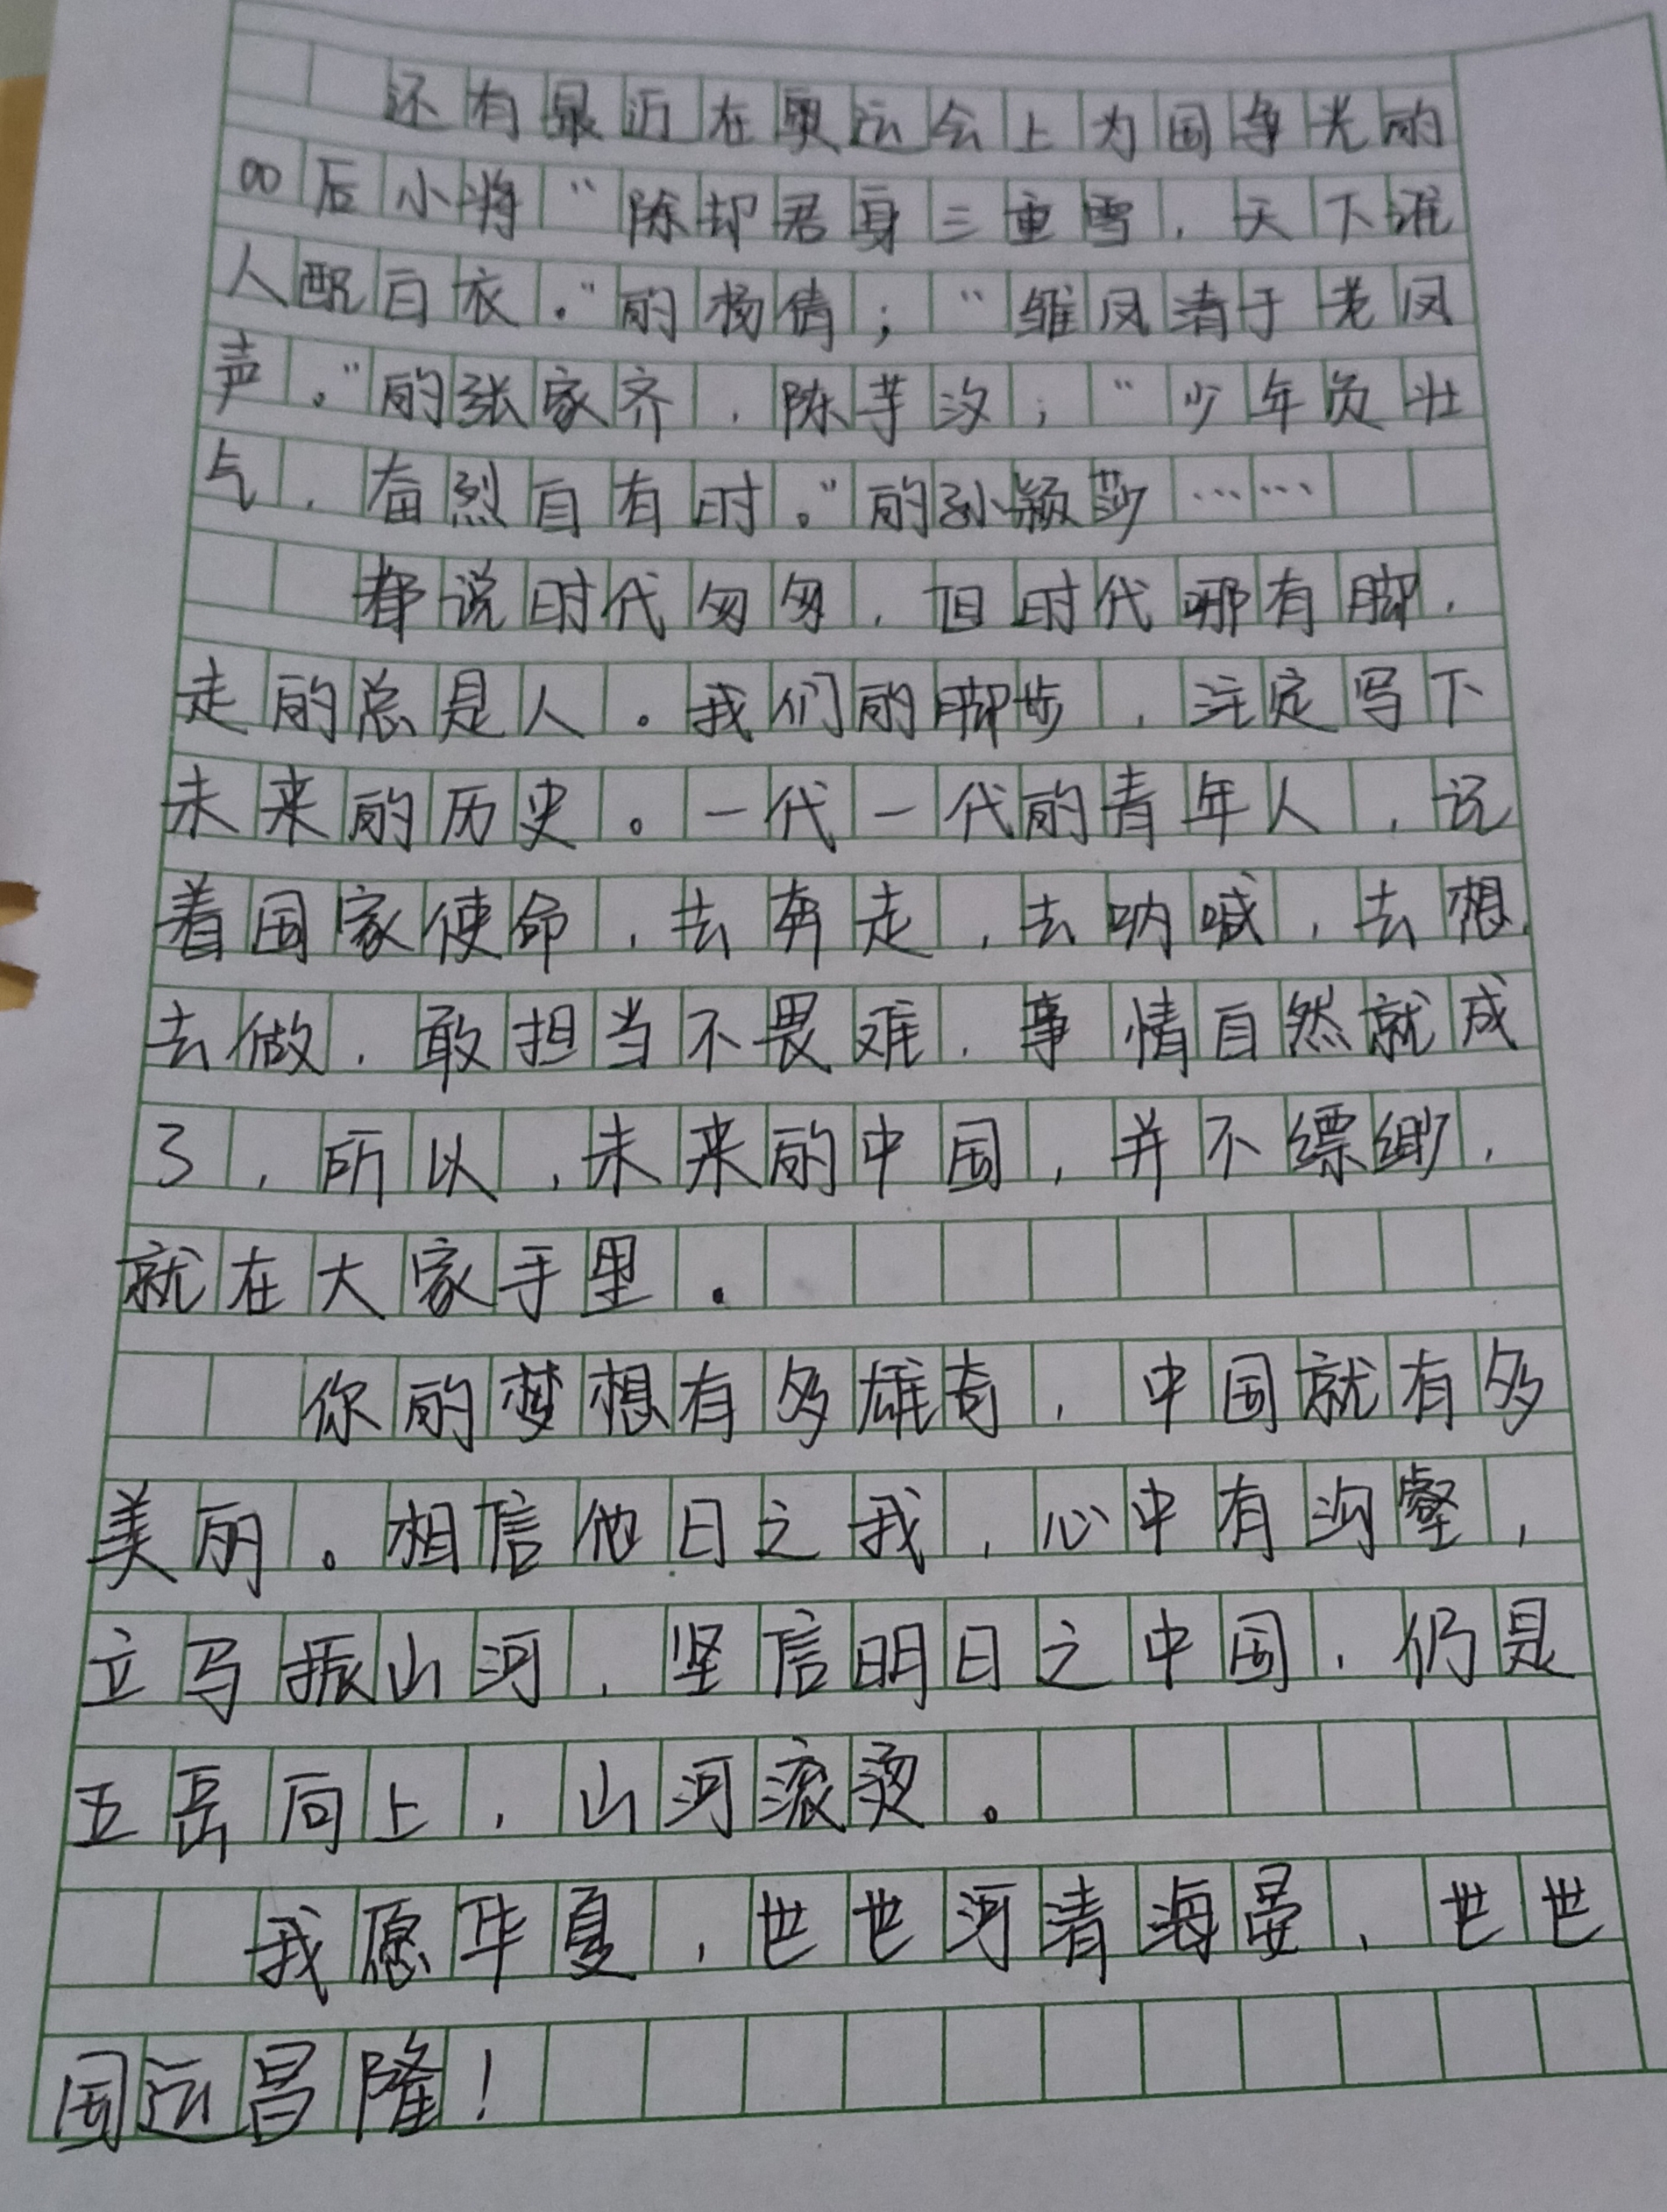 还有最近在奥运会上为国争光的
00后小将“陈却君身三重雪，天下谁
人配白衣。”的杨倩；“雏凤清于老凤
声。”的张家齐，陈芋汐；“少年负壮
气，奋烈自有时。”的孙颖莎……
都说时代匆匆，但时代哪有脚，
走的总是人。我们的脚步，注定写下
未来的历史。一代一代的青年人，说
着国家使命，去奔走，去呐喊，去想，
去做，敢担当不畏难，事情自然就成
了，所以，未来的中国，并不缥缈，
就在大家手里。
你的梦想有多雄奇，中国就有多
美丽。相信他日之我，心中有沟壑，
立马振山河，坚信明日之中国，仍是
五岳向上，山河滚烫。
我愿华夏，世世河清海晏，世世
国运昌隆！